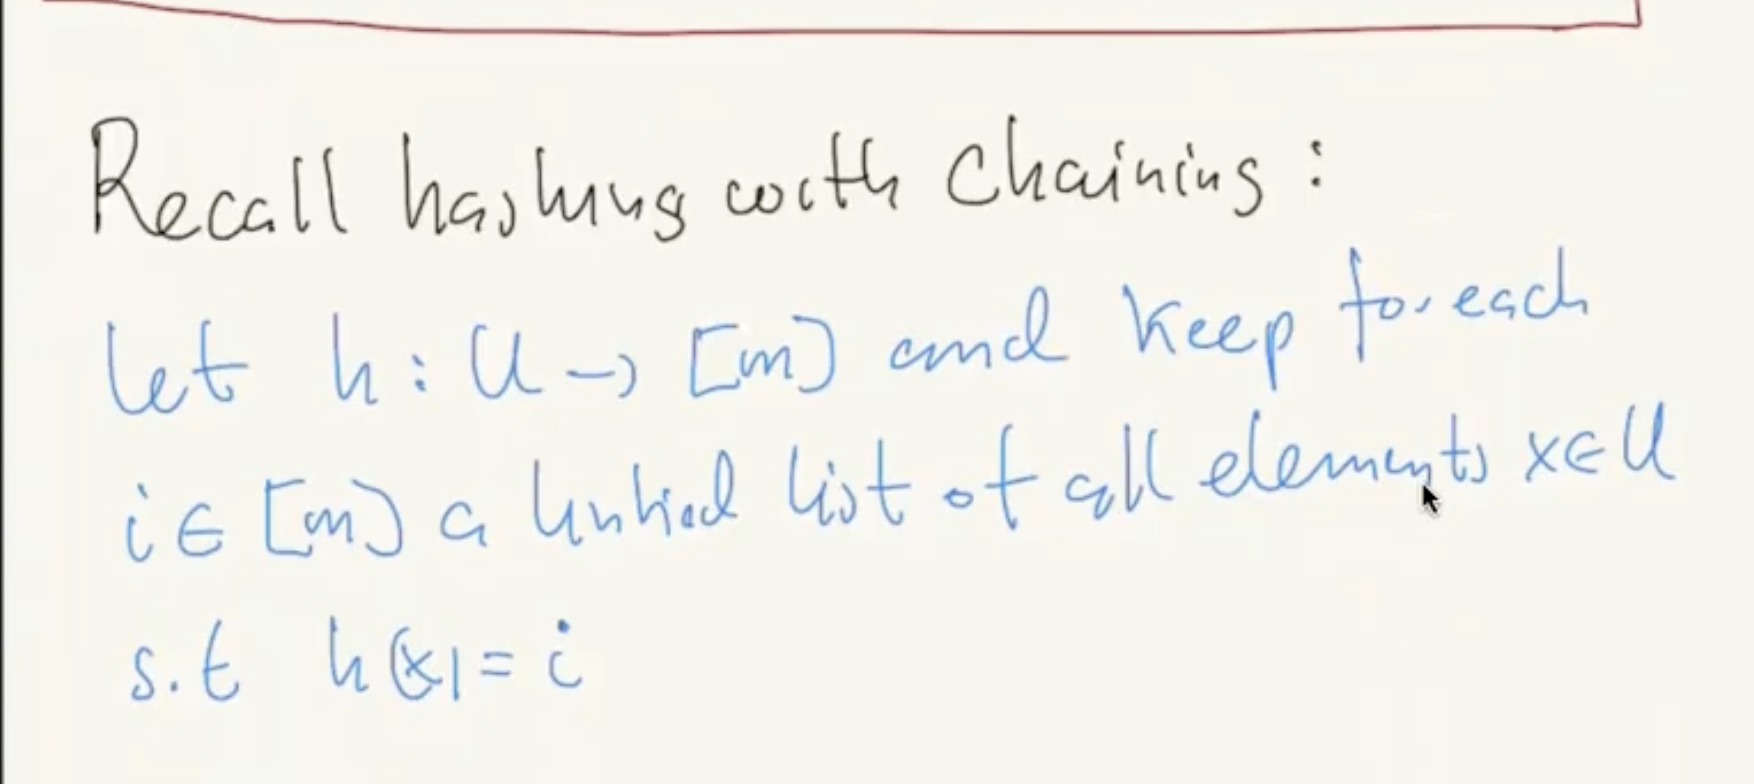 Recall hashing with Chaining :
let h : U → [m] and keep for each
i ∈ [m] a linked list of all elements x ∈ U
s.t h(x) = i